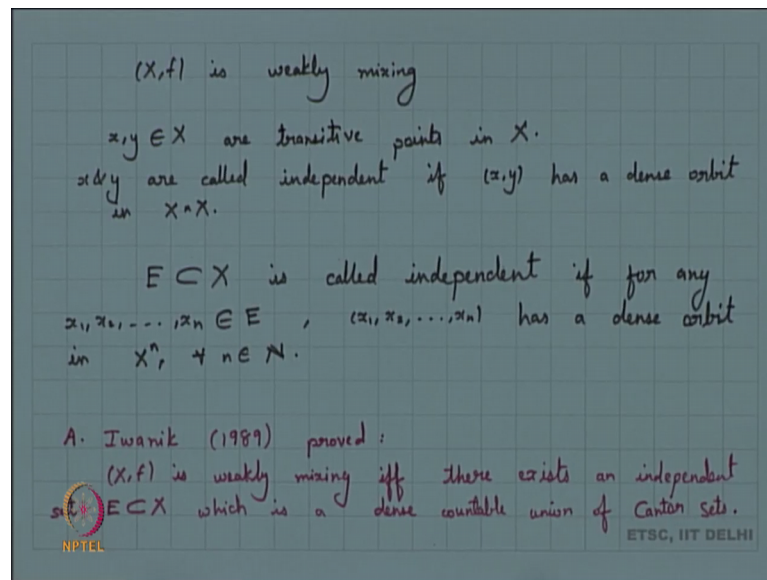 (X,f) is weakly mixing
x,y ∈ X are transitive points in X.
x & y are called independent if (x,y) has a dense orbit
in X×X.
E ⊂ X is called independent if for any
x₁,x₂,...,xₙ ∈ E , (x₁,x₂,...,xₙ) has a dense orbit
in Xⁿ, ∀ n ∈ N.
A. Iwanik (1989) proved :
(X,f) is weakly mixing iff there exists an independent
set E ⊂ X which is a dense countable union of Cantor sets.
NPTEL
ETSC, IIT DELHI